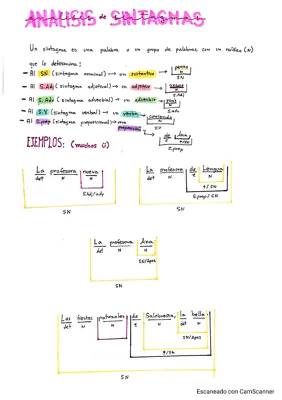 ANÁLISIS de SINTAGMAS
Un sintagma es una palabra o un grupo de palabras con un núcleo (N)
que lo determina:
- Al SN (sintagma nominal) → un sustantivo
N
SN
- Al S.Adj (sintagma adjetival) → un adjetivo
N
S.Adj
- Al S.Adv (sintagma adverbial) → un adverbio
N
S.Adv
- Al S.V (sintagma verbal) → un verbo
N
S.V
- Al S.prep (sintagma preposicional) → una preposición
de Ana
E N
S.prep
EJEMPLOS: (muchos)
La profesora nueva
det N N
S.Adj/ady
SN
La profesora de Lengua
det N E N
S.prep/
SN
La profesora Ana
det N N
SN/Apos
SN
Las fiestas patronales de Salobreña, la bella
det N N E N det N
SN/Apos
SN
Escaneado con CamScanner